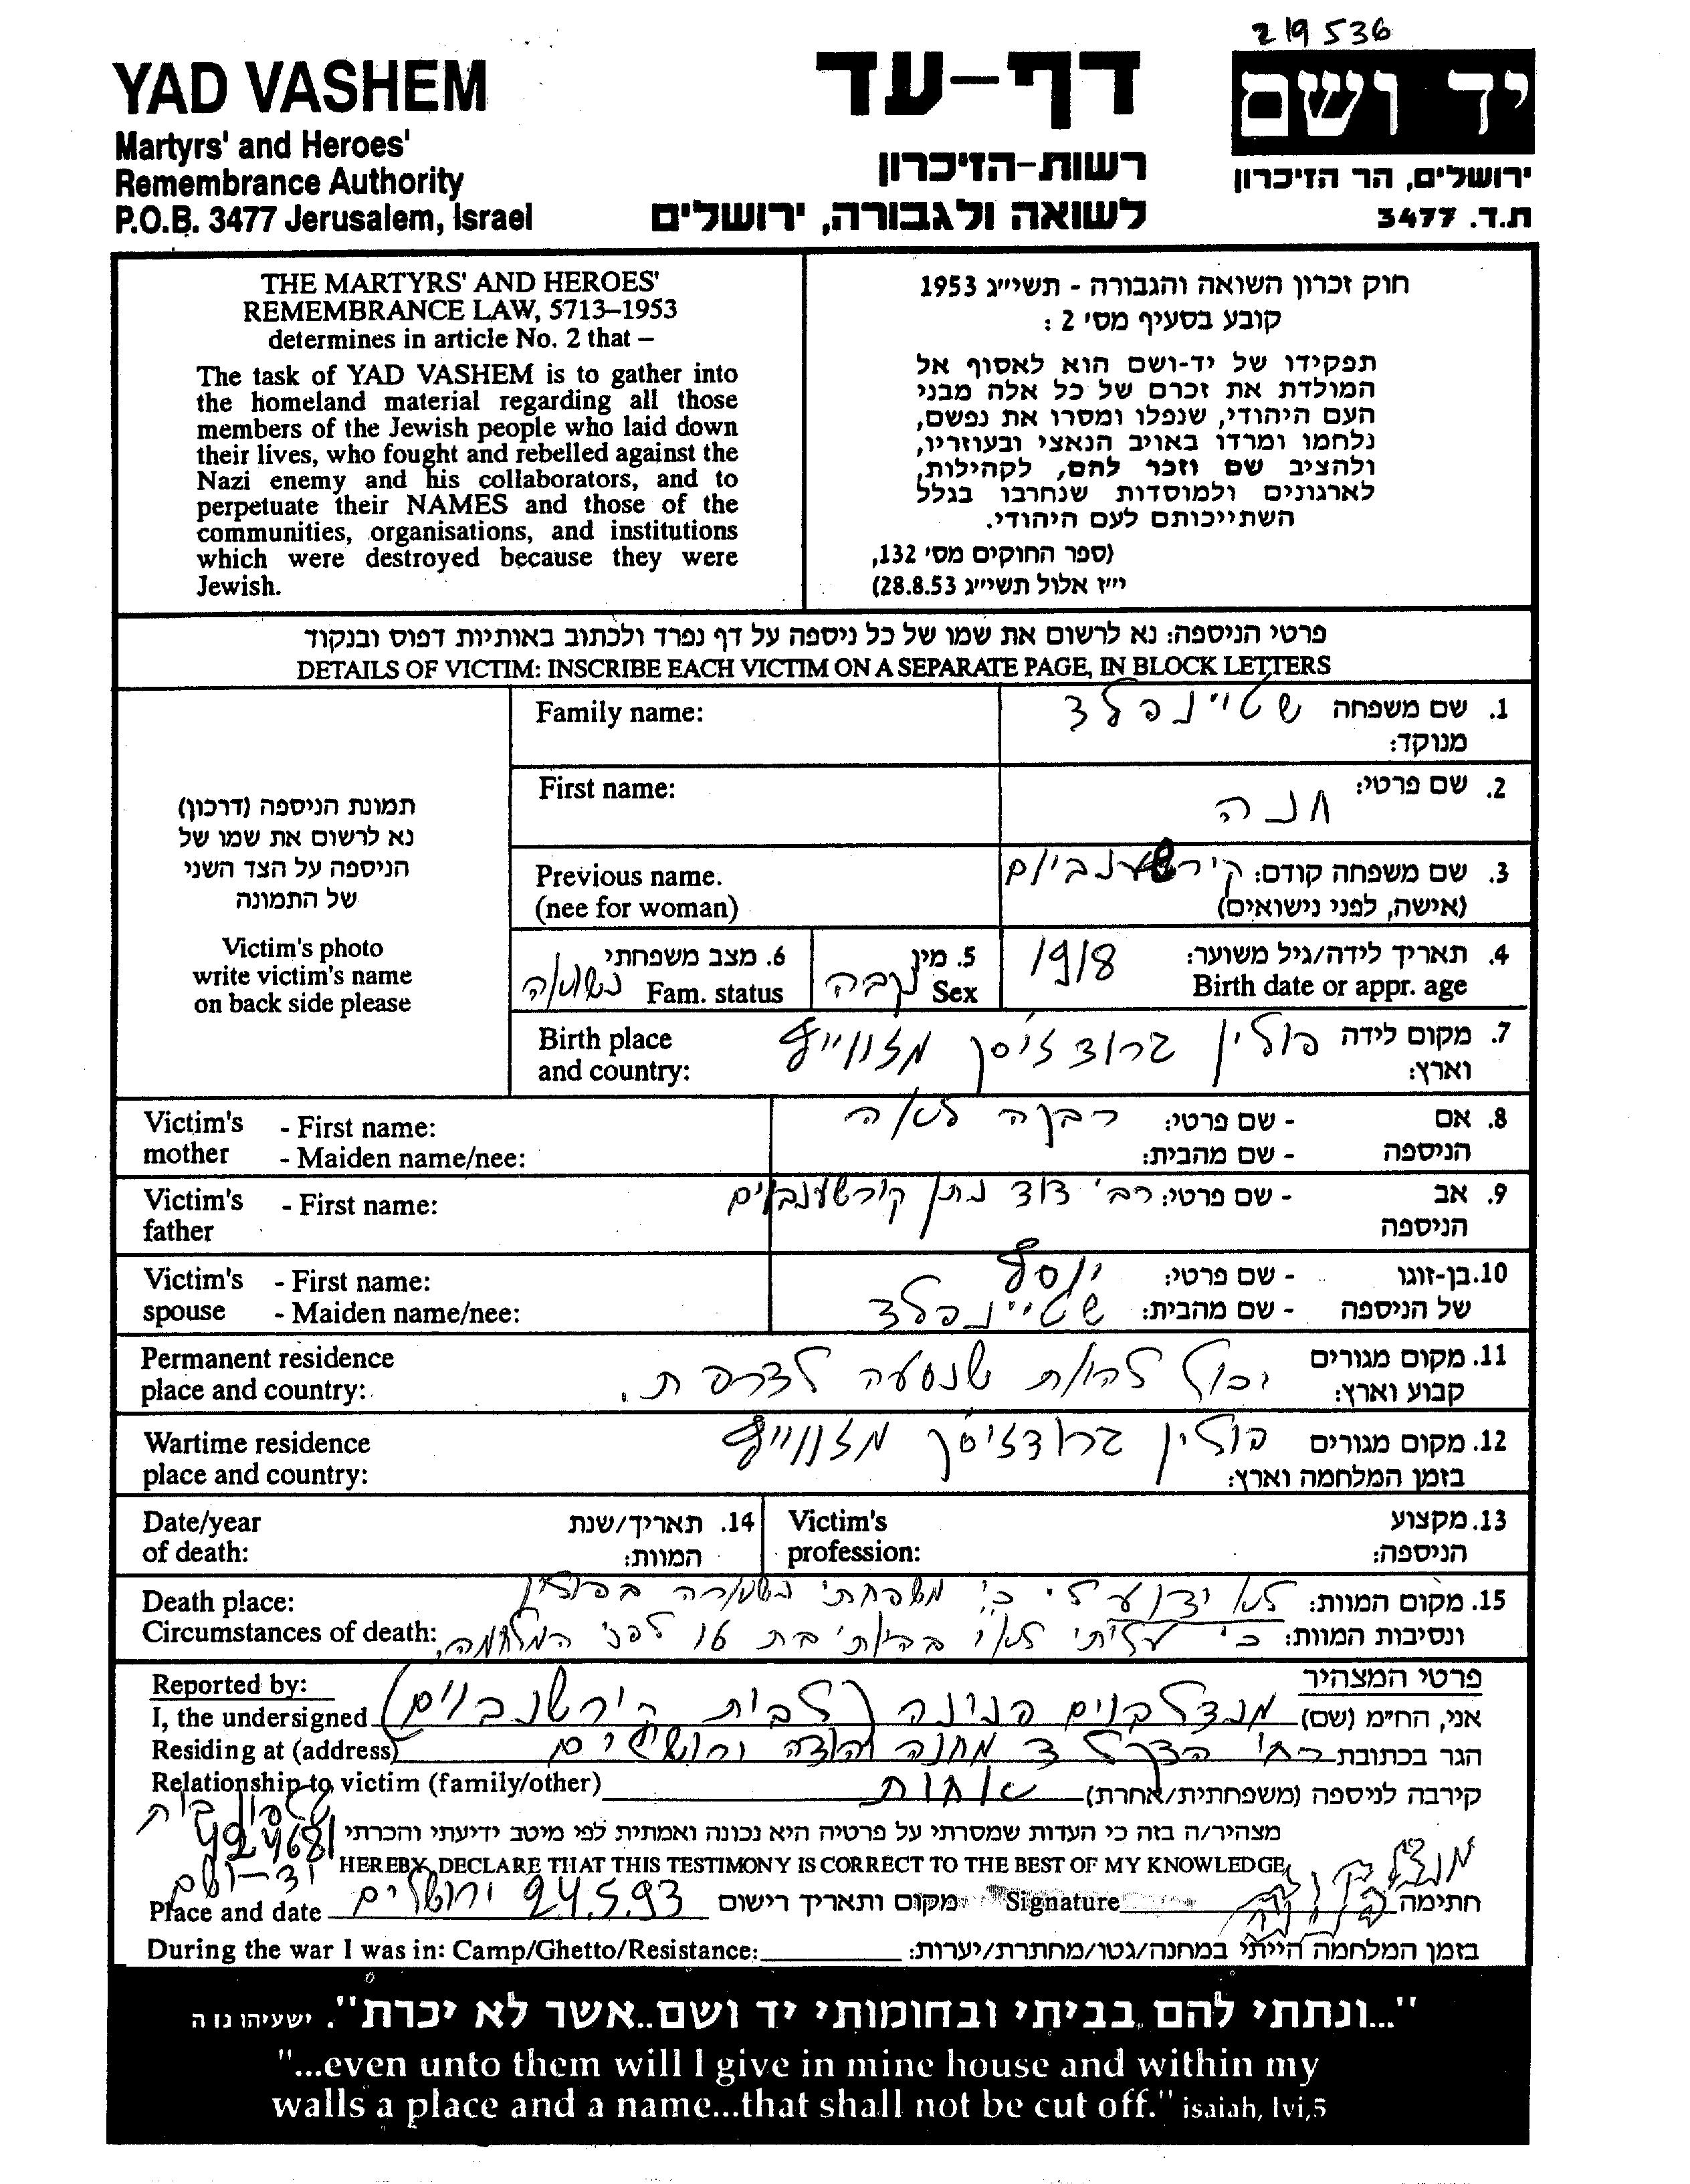 219536
YAD VASHEM
Martyrs' and Heroes'
Remembrance Authority
P.O.B. 3477 Jerusalem, Israel
דף-עד
רשות-הזיכרון
לשואה ולגבורה, ירושלים
יד ושם
ירושלים, הר הזיכרון
ת.ד. 3477
THE MARTYRS' AND HEROES'
REMEMBRANCE LAW, 5713–1953
determines in article No. 2 that –
The task of YAD VASHEM is to gather into
the homeland material regarding all those
members of the Jewish people who laid down
their lives, who fought and rebelled against the
Nazi enemy and his collaborators, and to
perpetuate their NAMES and those of the
communities, organisations, and institutions
which were destroyed because they were
Jewish.
חוק זכרון השואה והגבורה - תשי״ג 1953
קובע בסעיף מס׳ 2 :
תפקידו של יד-ושם הוא לאסוף אל
המולדת את זכרם של כל אלה מבני
העם היהודי, שנפלו ומסרו את נפשם,
נלחמו ומרדו באויב הנאצי ובעוזריו,
ולהציב שם וזכר להם, לקהילות,
לארגונים ולמוסדות שנחרבו בגלל
השתייכותם לעם היהודי.
(ספר החוקים מס׳ 132,
י״ז אלול תשי״ג 28.8.53)
פרטי הניספה: נא לרשום את שמו של כל ניספה על דף נפרד ולכתוב באותיות דפוס ובנקוד
DETAILS OF VICTIM: INSCRIBE EACH VICTIM ON A SEPARATE PAGE, IN BLOCK LETTERS
תמונת הניספה (דרכון)
נא לרשום את שמו של
הניספה על הצד השני
של התמונה
Victim's photo
write victim's name
on back side please
1. שם משפחה שטיינפלד Family name:
מנוקד:
2. שם פרטי: חנה First name:
3. שם משפחה קודם: קירשענבוים Previous name.
(אישה, לפני נישואים) (nee for woman)
4. תאריך לידה/גיל משוער: 1918 5. מין נקבה 6. מצב משפחתי נשואה
Birth date or appr. age Sex Fam. status
7. מקום לידה פולין Birth place
וארץ: and country:
8. אם - שם פרטי: רבקה לאה Victim's - First name:
הניספה - שם מהבית: mother - Maiden name/nee:
9. אב - שם פרטי: רב' דוד נתן קירשענבוים Victim's - First name:
הניספה father
10. בן-זוגו - שם פרטי: יוסף Victim's - First name:
של הניספה - שם מהבית: שטיינפלד spouse - Maiden name/nee:
11. מקום מגורים יכול להיות שנסעה לצרפת. Permanent residence
קבוע וארץ: place and country:
12. מקום מגורים פולין Wartime residence
בזמן המלחמה וארץ: place and country:
13. מקצוע Victim's 14. תאריך/שנת Date/year
הניספה: profession: המוות: of death:
15. מקום המוות: לא ידוע לי כי משפחתי נשארה בפולין Death place:
ונסיבות המוות: כי עליתי בת 16 לפני המלחמה, Circumstances of death:
פרטי המצהיר Reported by:
אני, הח״מ (שם) מנדלבוים פנינה (לבית קירשנבוים) I, the undersigned
הגר בכתובת רח' 4 מחנה יהודה ירושלים Residing at (address)
קירבה לניספה (משפחתית/אחרת) אחות Relationship to victim (family/other)
טלפון בית
מצהיר/ה בזה כי העדות שמסרתי על פרטיה היא נכונה ואמתית לפי מיטב ידיעתי והכרתי
I HEREBY DECLARE THAT THIS TESTIMONY IS CORRECT TO THE BEST OF MY KNOWLEDGE,
יד-ושם
חתימה מנדלבוים פנינה Signature מקום ותאריך רישום 24.5.93 ירושלים Place and date
בזמן המלחמה הייתי במחנה/גטו/מחתרת/יערות: During the war I was in: Camp/Ghetto/Resistance:
"...ונתתי להם בביתי ובחומותי יד ושם..אשר לא יכרת". ישעיהו נז ה
"...even unto them will I give in mine house and within my
walls a place and a name...that shall not be cut off." isaiah, lvi,5